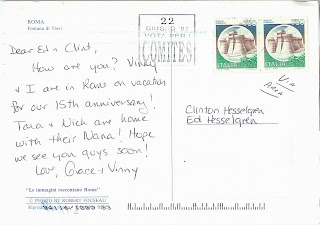 ROMA
Fontana di Trevi
22
GIUGNO 97
VOTA PER I
COMITES
ITALIA
ITALIA
VIA
AREA
Dear Ed & Clint,
How are you? Vinny
& I are in Rome on vacation
for our 15th anniversary!
Tara & Nick are home
with their Nana! Hope
we see you guys soon!
Love, Grace & Vinny
Clinton Hesselgren
Ed Hesselgren
"Le immagini raccontano Roma"
© PHOTO BY ROBERT